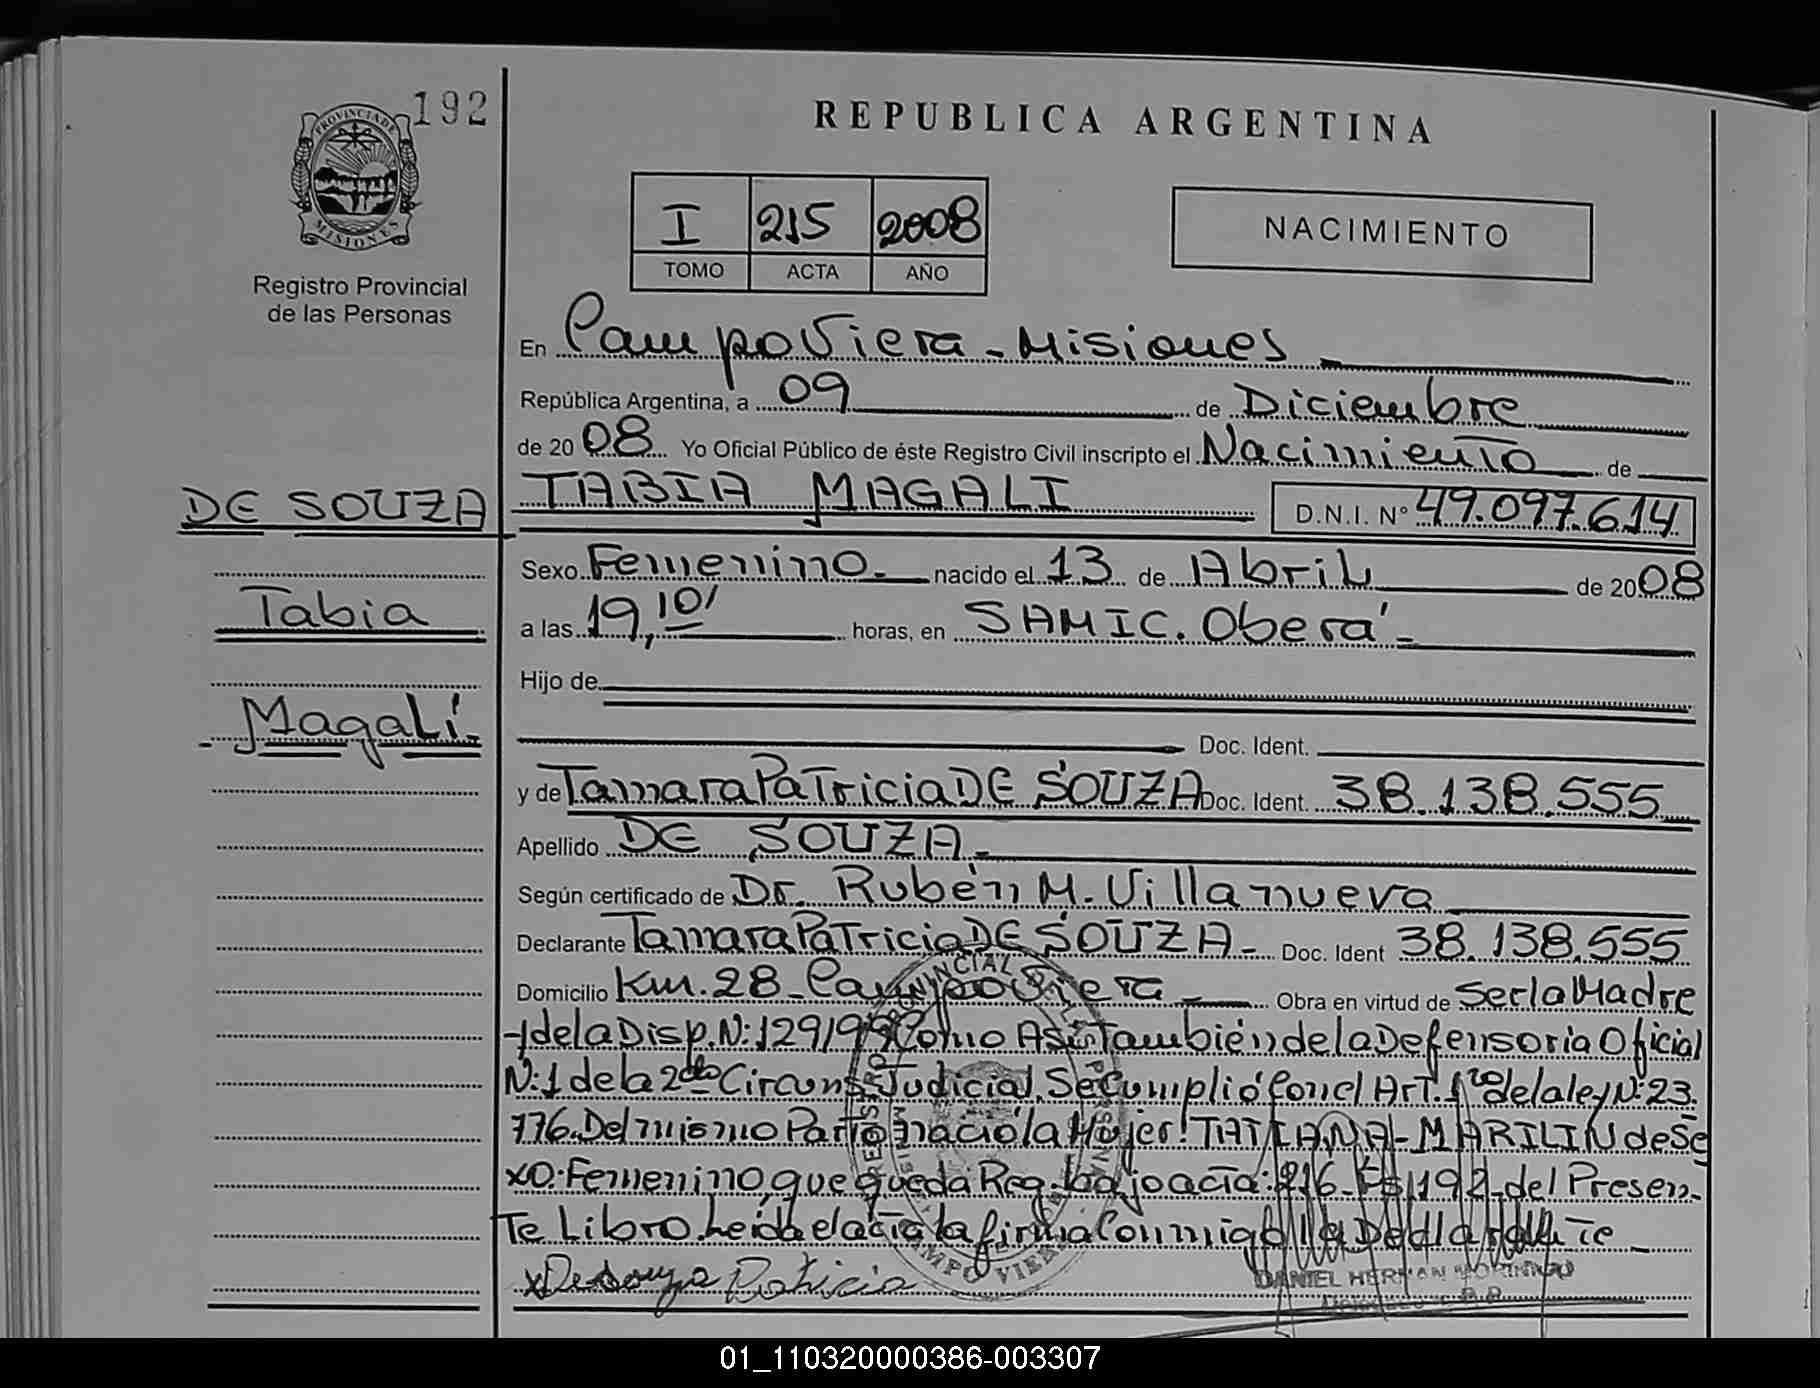 192
PROVINCIA DE
MISIONES
Registro Provincial
de las Personas
REPUBLICA ARGENTINA
I 215 2008
TOMO ACTA AÑO
NACIMIENTO
En Campo Viera - Misiones
República Argentina, a 09 de Diciembre
de 2008 Yo Oficial Público de éste Registro Civil inscripto el Nacimiento de
DE SOUZA
TABIA MAGALI D.N.I. N° 49.097.614
Sexo Femenino. nacido el 13 de Abril de 2008
Tabia
a las 19,10' horas, en SAMIC. Oberá-
Hijo de
Magalí.
Doc. Ident.
y de Tamara Patricia DE SOUZA Doc. Ident. 38.138.555
Apellido DE SOUZA-
Según certificado de Dr. Rubén M. Villanueva
Declarante Tamara Patricia DE SOUZA- Doc. Ident 38.138.555
Domicilio Km. 28 - Campo Viera - Obra en virtud de Ser la Madre
-y de la Disp. N: 129/99 Como Así También de la Defensoría Oficial
N: 1 de la 2da Circuns. Judicial. Se Cumplió Con el Art. 1ro de la ley N: 23.
776. Del mismo Parto nació la Mujer: TATIANA - MARILIN de Se
xo: Femenino, que queda Reg. bajo acta: 216 - Fs 192 - del Presen-
te Libro. Leída el acta la firma Conmigo la Declarante -
x De souza Patricia
DANIEL HERNAN
REGISTRO PROVINCIAL DE LAS PERSONAS
CAMPO VIERA
MISIONES
01_110320000386-003307